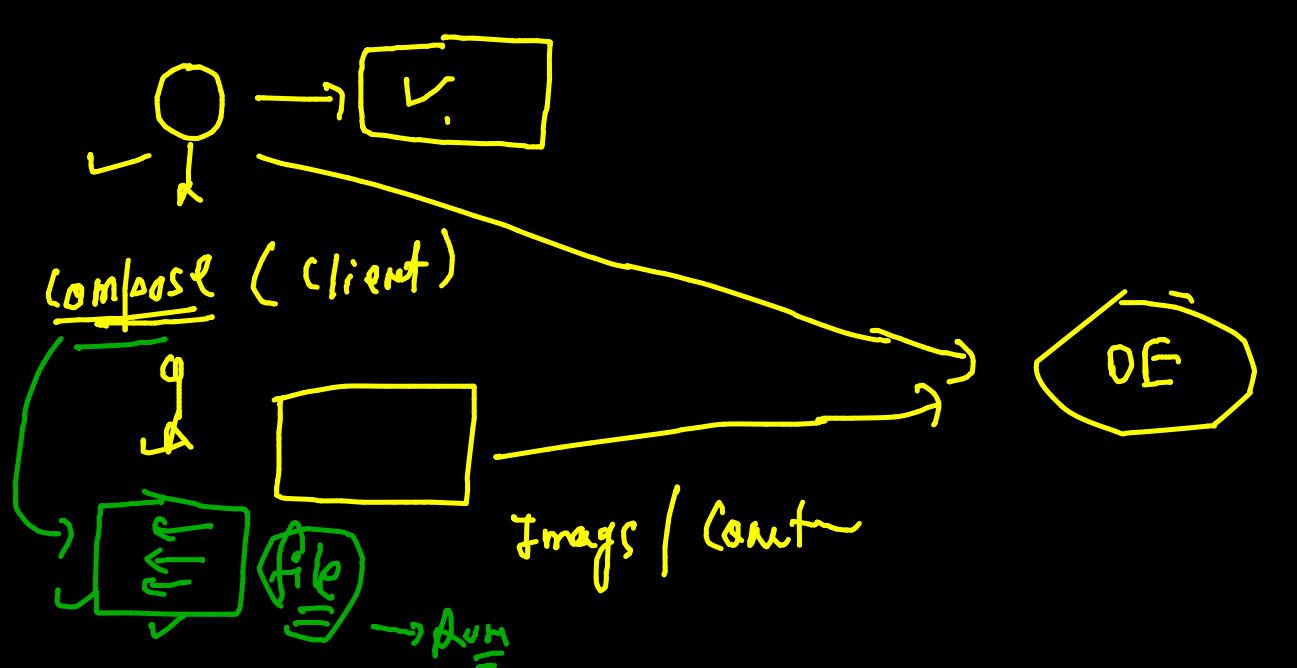 Compose (Client)
DE
Images / Cont
file
→ Run